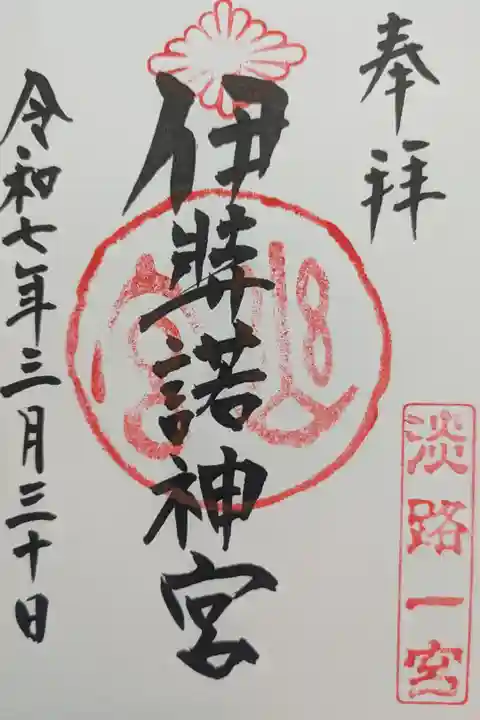 奉拝
淡路一宮
伊弉諾神宮
令和七年三月三十日